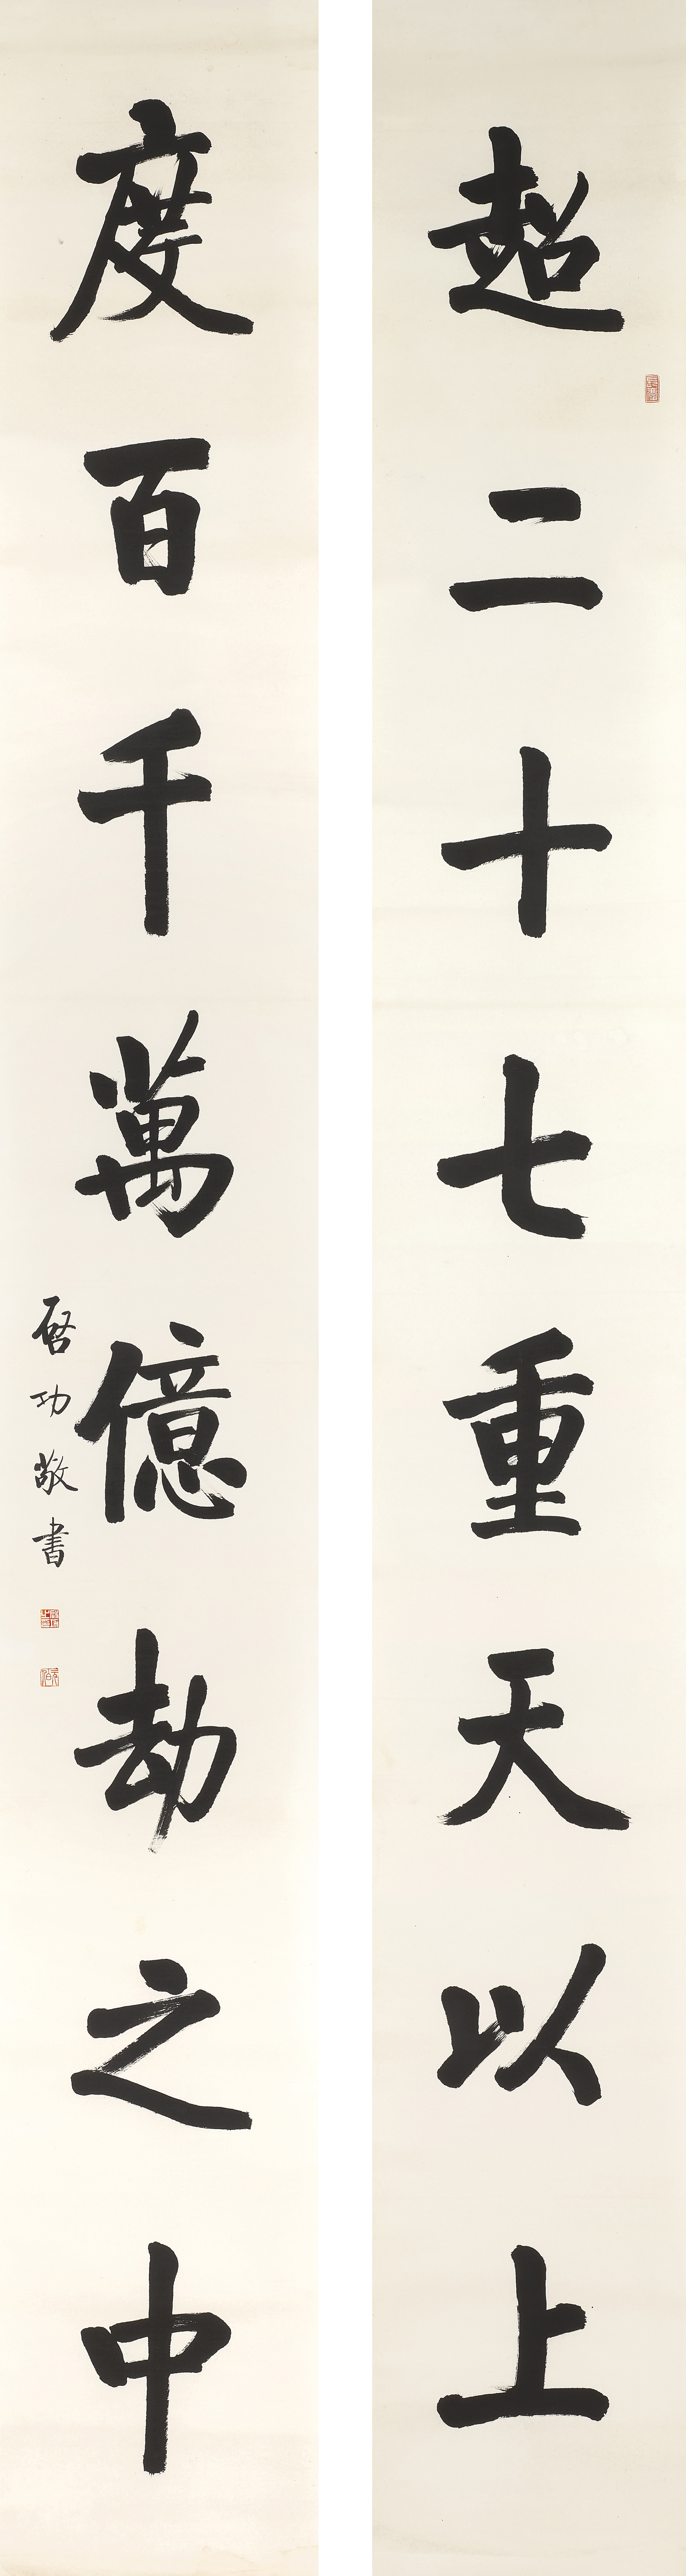 超二十七重天以上
度百千萬億劫之中
啓功敬書